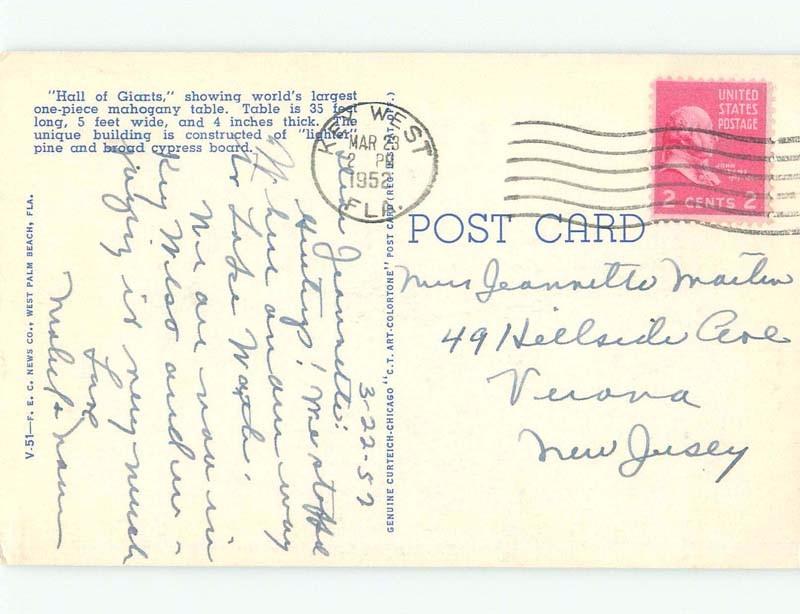 "Hall of Giants," showing world's largest
one-piece mahogany table. Table is 35 feet
long, 5 feet wide, and 4 inches thick. The
unique building is constructed of "lighter"
pine and broad cypress board.
KEY WEST
MAR 23
2 PM
1952
FLA.
UNITED
STATES
POSTAGE
JOHN
2 CENTS 2
POST CARD
V-51—F. E. C. NEWS CO., WEST PALM BEACH, FLA.
GENUINE CURTEICH-CHICAGO "C. T. ART-COLORTONE" POST CARD (REG. U. S. PAT. OFF.)
3-22-52
Dear Jeannette:
Greetings! We stopped
here on our way
to Lake Worth.
We are now in
Key West and en-
joying it very much
Love
Mabel &
Miss Jeannette Martin
49 Hillside Ave
Verona
New Jersey